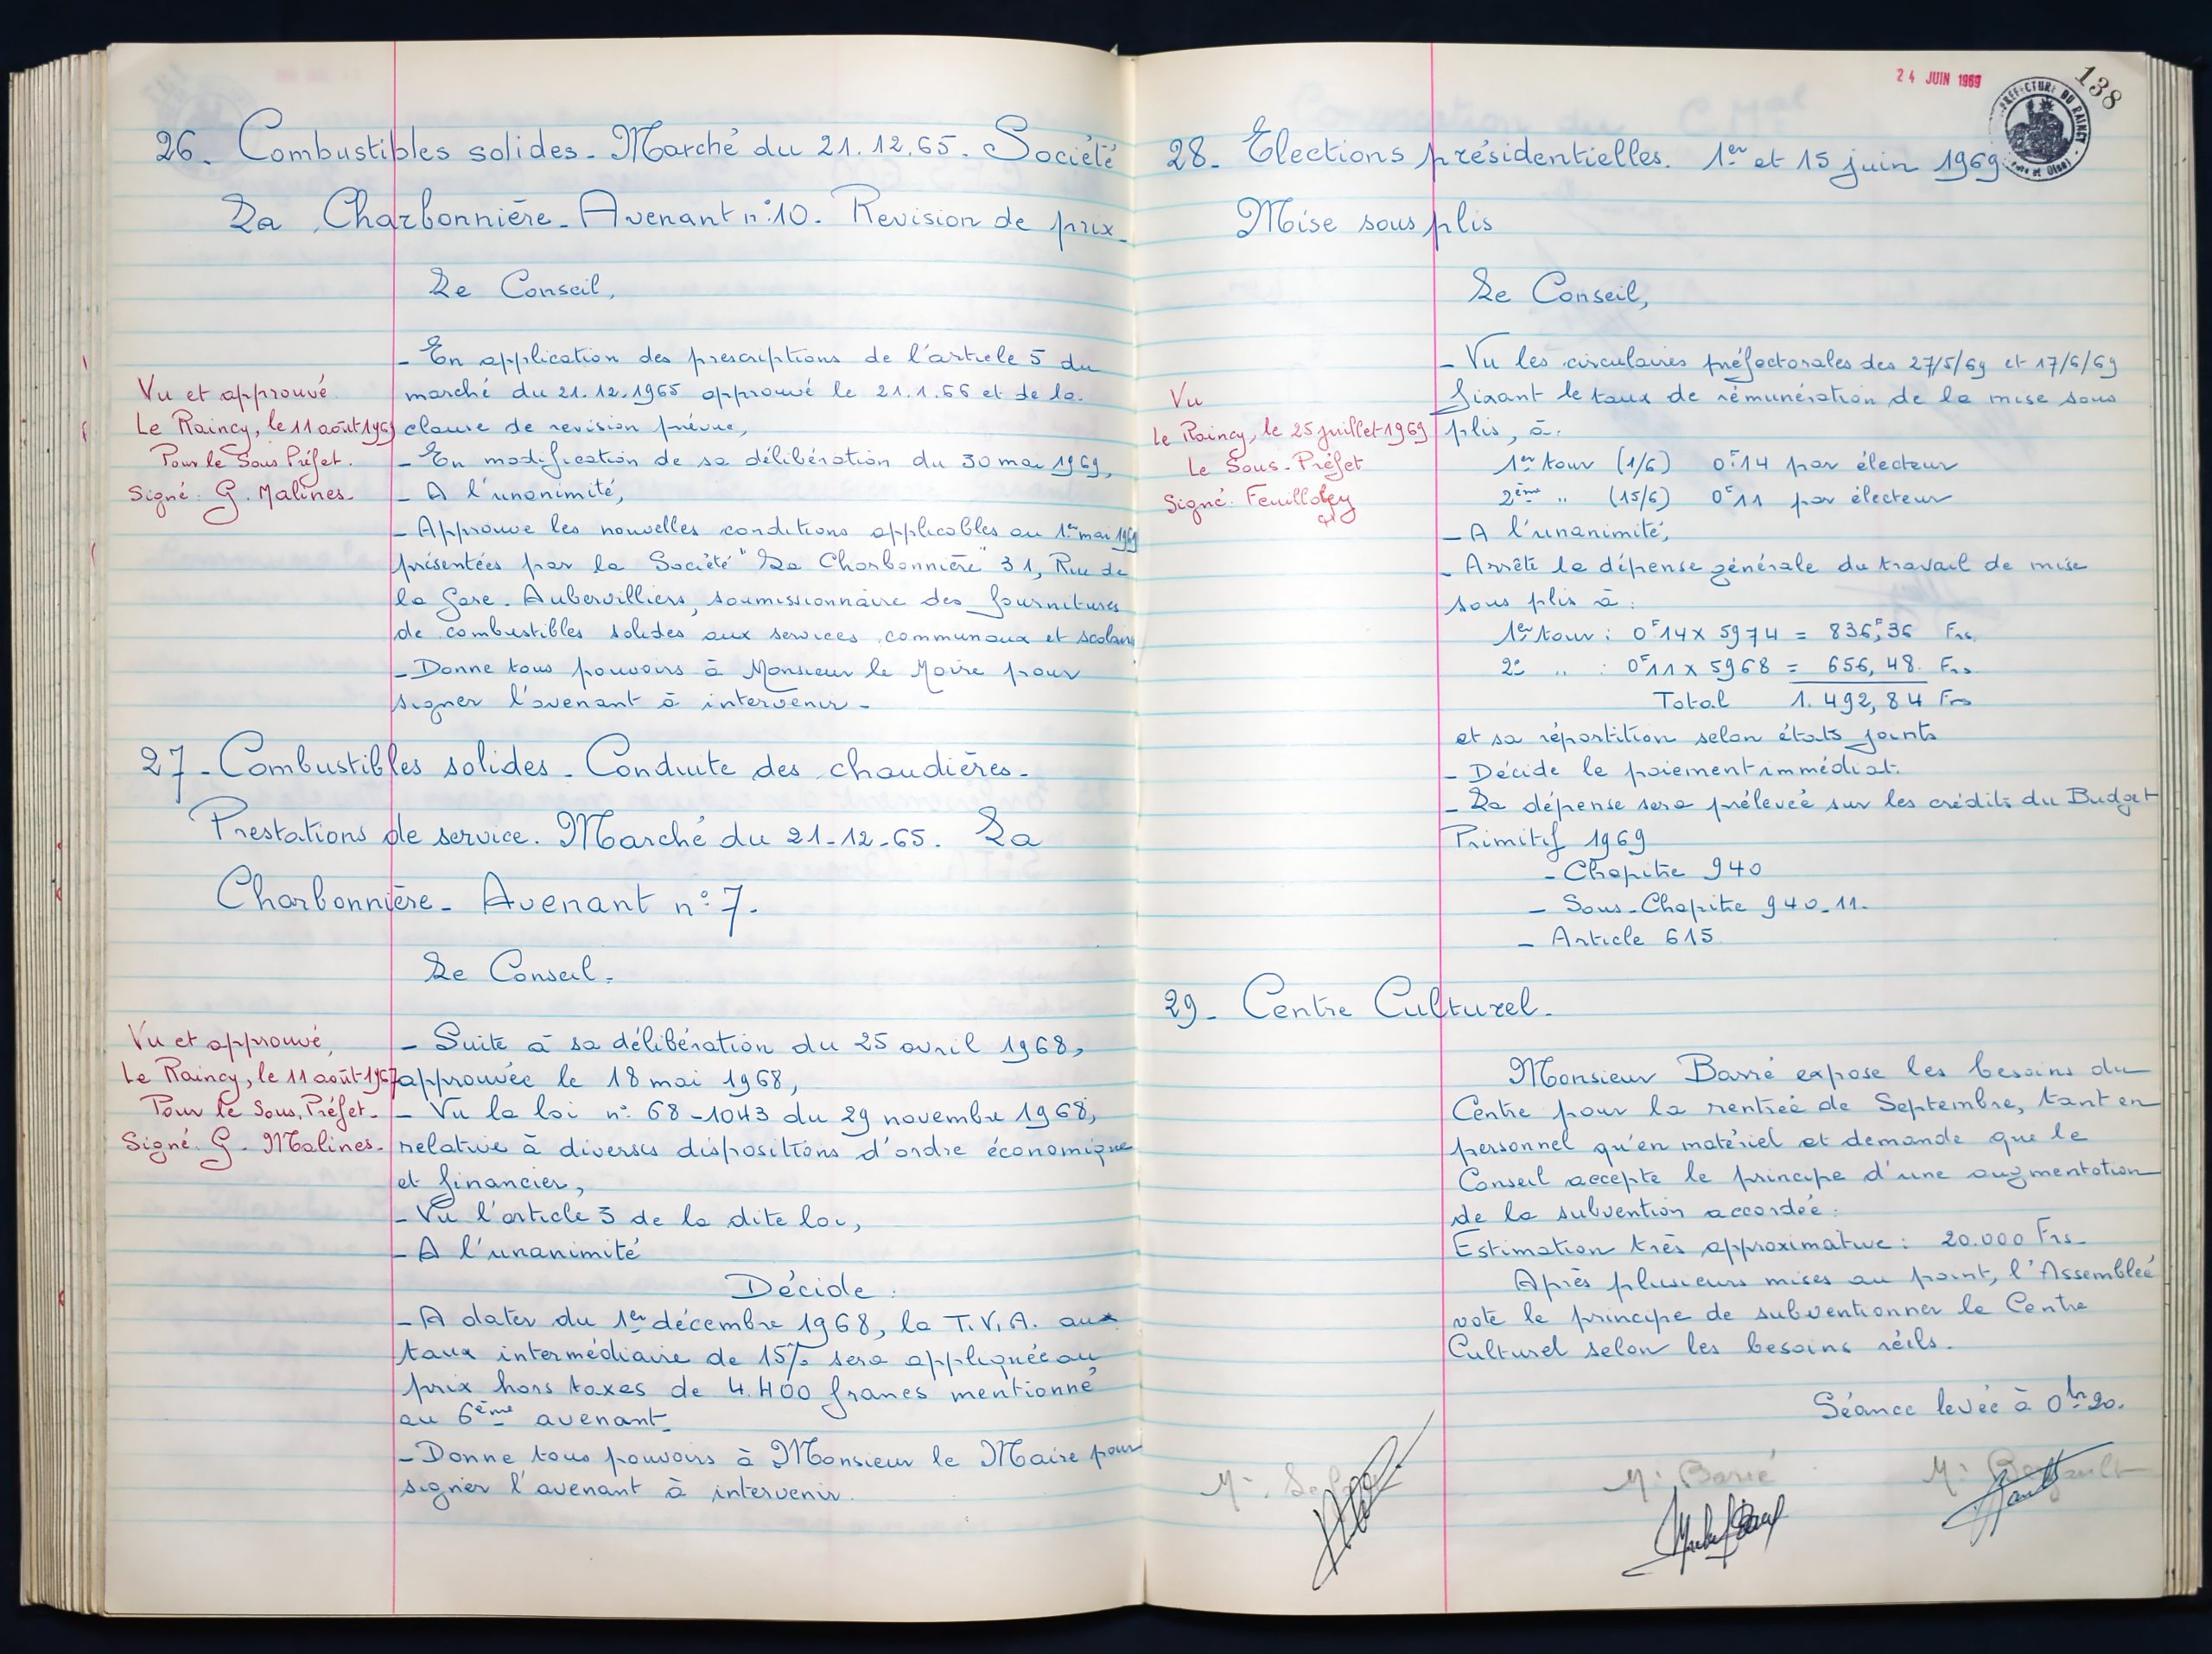 26. Combustibles solides. Marché du 21.12.65. Société
La Charbonnière. Avenant n° 10. Revision de prix.
Le Conseil,
- En application des prescriptions de l'article 5 du
marché du 21.12.1965 approuvé le 21.1.66 et de la
clause de revision prévue,
- En modification de sa délibération du 30 mai 1969,
- A l'unanimité,
- Approuve les nouvelles conditions applicables au 1er mai 1969
présentées par la Société "La Charbonnière" 31, Rue de
la Gare. Aubervilliers, soumissionnaire des fournitures
de combustibles solides aux services communaux et scolaires
- Donne tous pouvoirs à Monsieur le Maire pour
signer l'avenant à intervenir -
Vu et approuvé
Le Raincy, le 11 août 1969
Pour le Sous Préfet.
Signé: G. Malines.
27 - Combustibles solides - Conduite des chaudières.
Prestations de service. Marché du 21-12-65. La
Charbonnière - Avenant n° 7.
Le Conseil.
- Suite à sa délibération du 25 avril 1968,
approuvée le 18 mai 1968,
- Vu la loi n° 68-1043 du 29 novembre 1968,
relative à diverses dispositions d'ordre économique
et financier,
- Vu l'article 3 de la dite loi,
- A l'unanimité
Décide:
- A dater du 1er décembre 1968, la T.V.A. aux
taux intermédiaire de 15% sera appliquée au
prix hors taxes de 4.400 francs mentionné
au 6ème avenant
- Donne tous pouvoirs à Monsieur le Maire pour
signer l'avenant à intervenir.
Vu et approuvé,
Le Raincy, le 11 août
Pour le Sous. Préfet.
Signé. G. Malines.
24 JUIN 1969
138
28 - Elections présidentielles. 1er et 15 juin 1969
Mise sous plis
Le Conseil,
- Vu les circulaires préfectorales des 27/5/69 et 17/6/69
fixant le taux de rémunération de la mise sous
plis, à:
1er tour (1/6) 0F14 par électeur
2ème " (15/6) 0F11 par électeur
- A l'unanimité,
- Arrête la dépense générale du travail de mise
sous plis à:
1er tour: 0F14 x 5974 = 836F,36 Frs.
2e " : 0F11 x 5968 = 656,48. Frs.
Total 1.492,84 Frs
et sa répartition selon états joints
- Décide le paiement immédiat.
- La dépense sera prélevée sur les crédits du Budget
Primitif 1969
- Chapitre 940
- Sous-Chapitre 940-11.
- Article 615
Vu
Le Raincy, le 25 juillet 1969
Le Sous-Préfet
Signé:
29 - Centre Culturel.
Monsieur Barré expose les besoins du
Centre pour la rentrée de Septembre, tant en
personnel qu'en matériel et demande que le
Conseil accepte le principe d'une augmentation
de la subvention accordée.
Estimation très approximative: 20.000 Frs
Après plusieurs mises au point, l'Assemblée
vote le principe de subventionner le Centre
Culturel selon les besoins réels.
Séance levée à 0h20.
Mr Barré